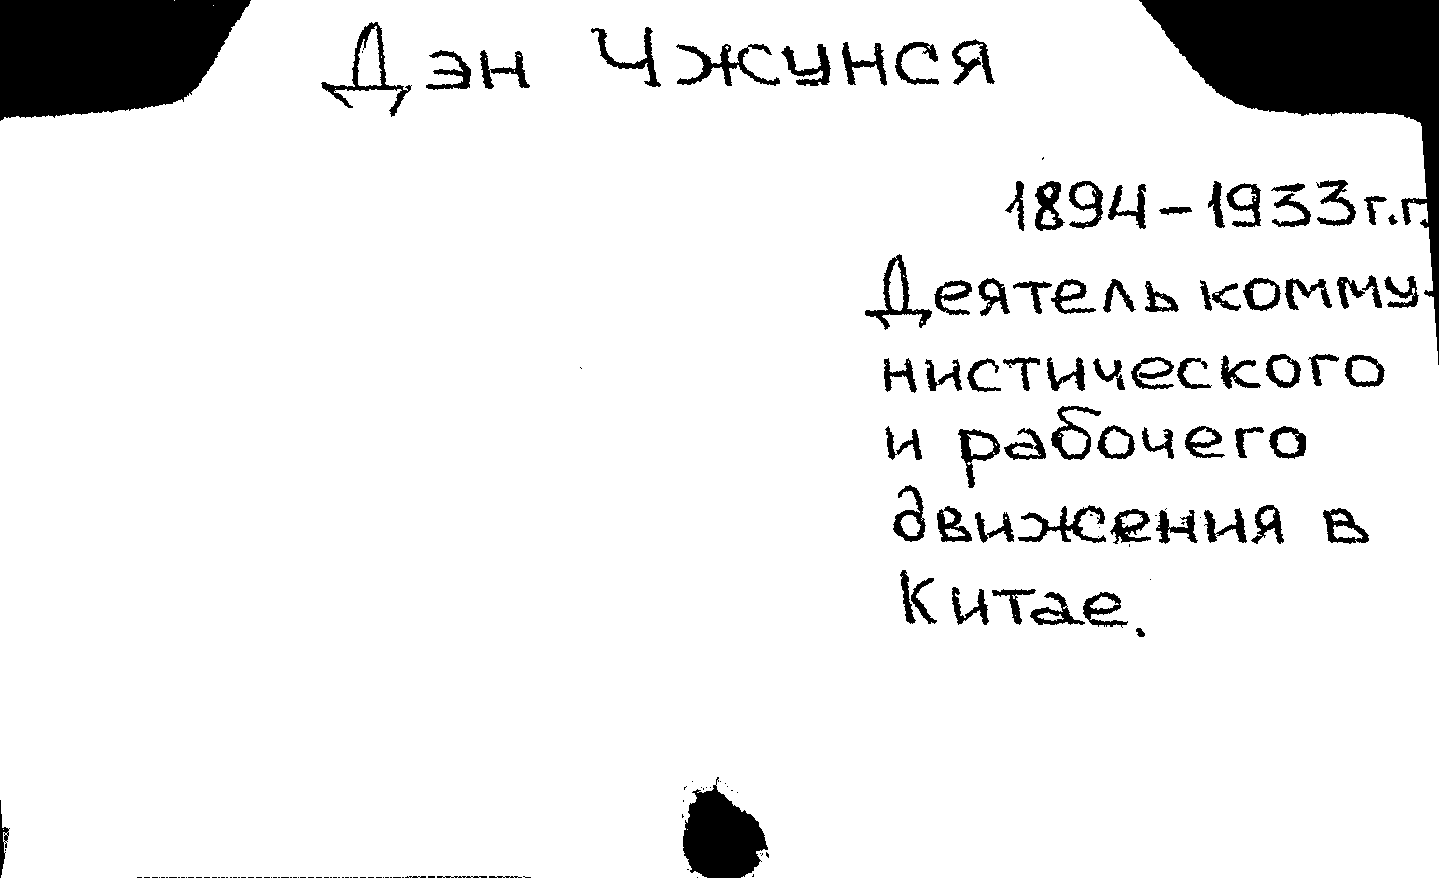 Дэн Чжунся
1894-1933г.г.
Деятель комму-
нистического
и рабочего
движения в
Китае.